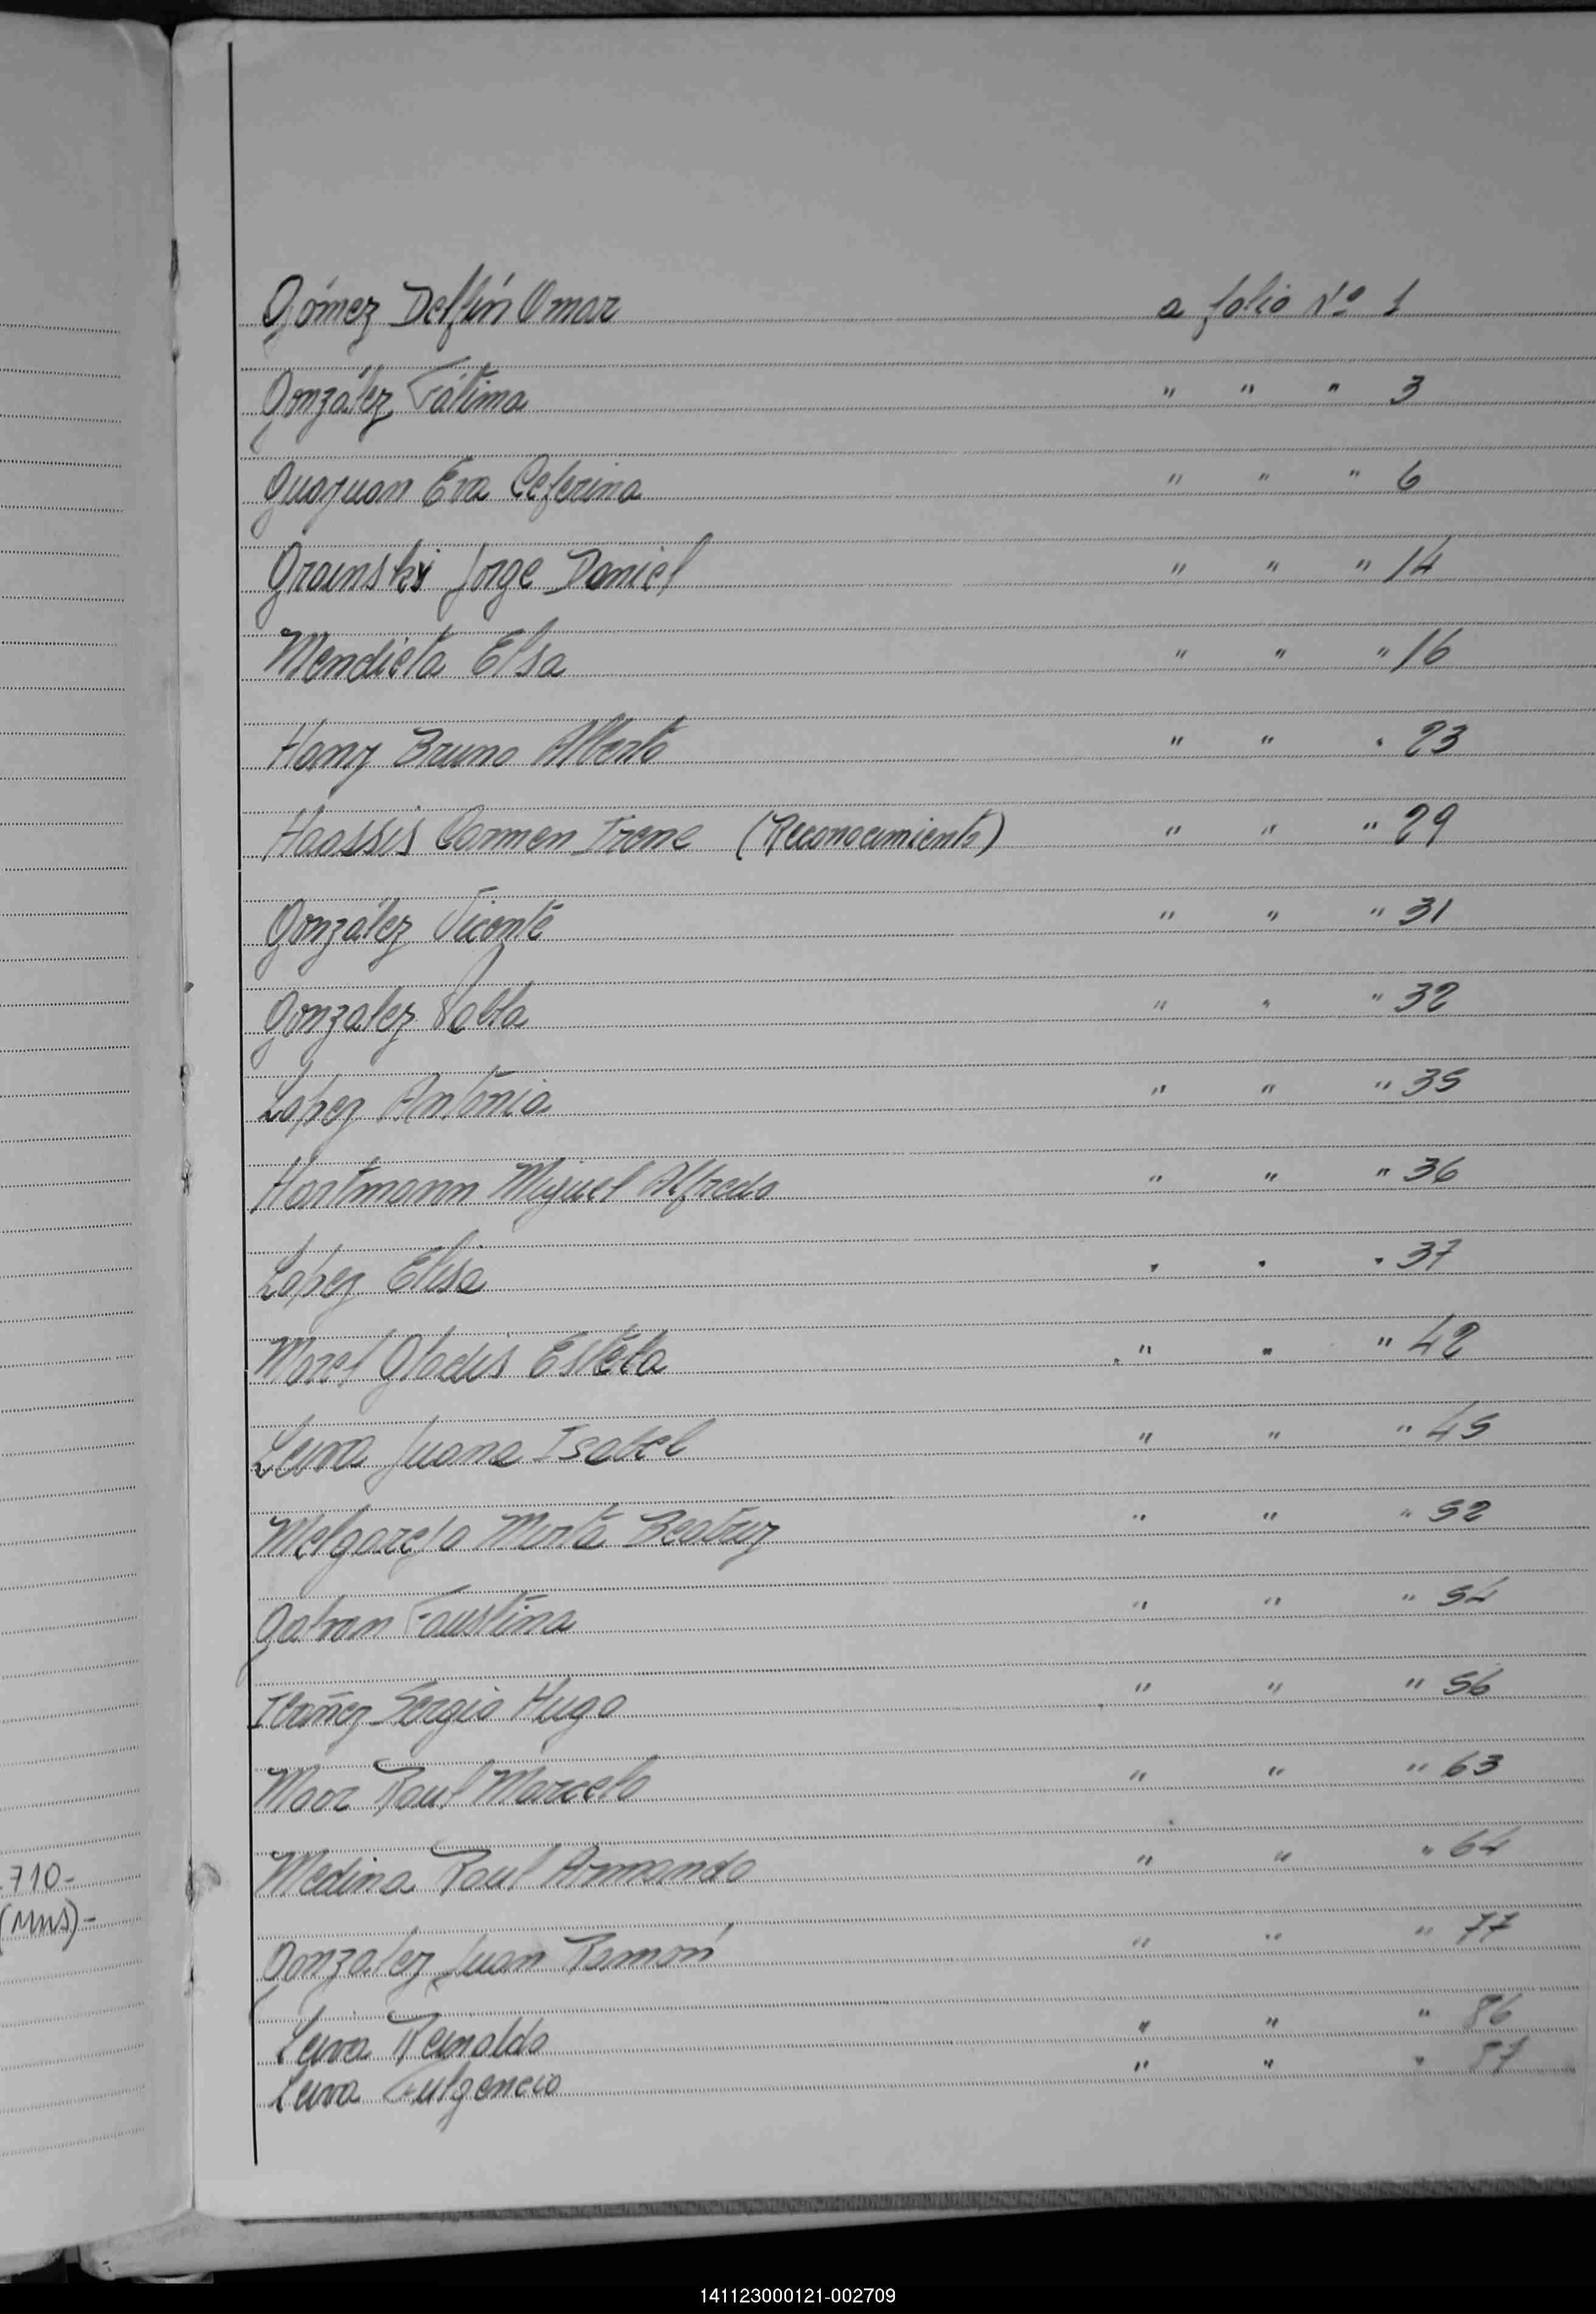 Gómez Delfín Omar a folio Nº 1
González Fátima " " " 3
Guayuan Eva Ceferina " " " 6
Grainski Jorge Daniel " " " 14
Mendieta Elsa " " " 16
Hany Bruno Alberto " " " 23
Haassis Carmen Irene (Reconocimiento) " " " 29
González Vicente " " " 31
Gonzalez Pabla " " " 32
Lopez Antonia " " " 35
Hartmann Miguel Alfredo " " " 36
Lopez Elisa " " " 37
Morel Gladis Estela " " " 42
Leiva Juana Isabel " " " 45
Melgarejo Mirta Beatriz " " " 52
Galvan Faustina " " " 54
Ibáñez Sergio Hugo " " " 56
Maor Raul Marcelo " " " 63
Medina Raul Armando " " " 64
González Juan Ramón " " " 77
Leiva Reinaldo " " " 86
Leiva Fulgencio " " " 87
710-
141123000121-002709